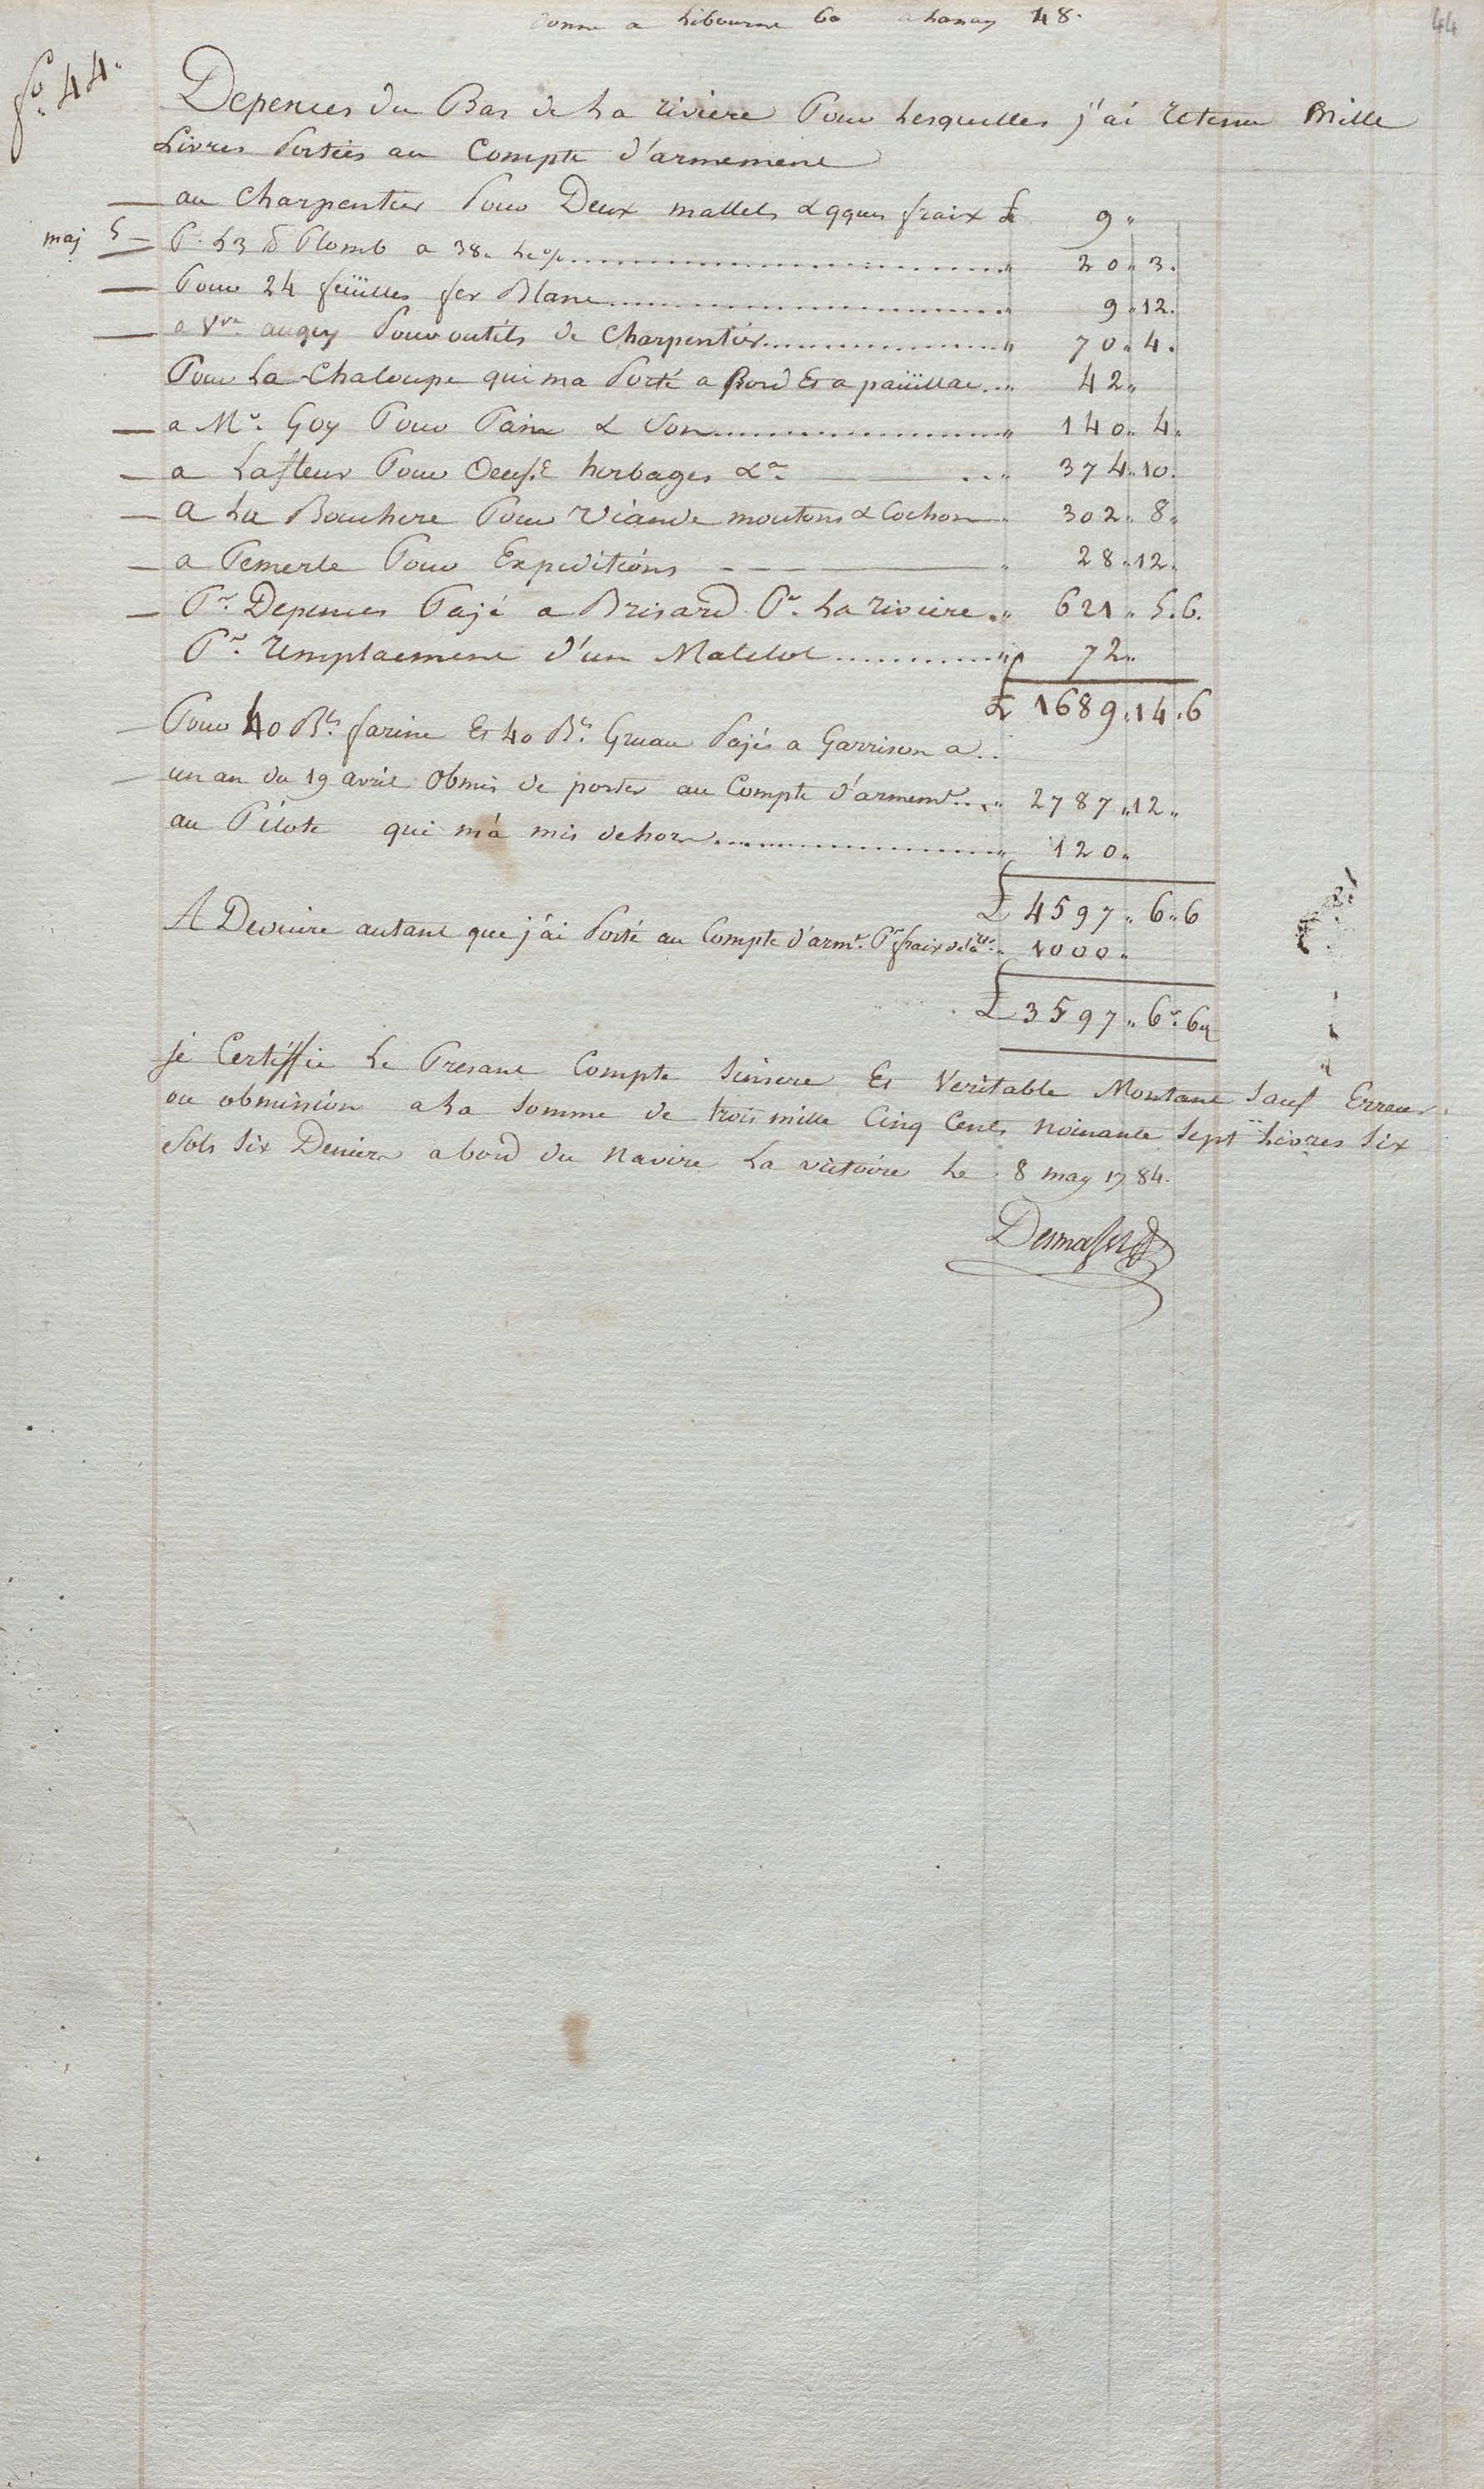 donné a Libourne 60 a Lanay 48.
44
fo. 44.
Depences du Bas de La riviere Pour Lesquelles j'ai retenu Mille
Livres Portées au Compte d'armement
au Charpentier Pour Deux mallets & qques fraix £ 9 "
maj 5 P. 53 lb Plomb a 38 " Le % " 20 " 3.
Pour 24 feüilles fer Blanc " 9 " 12.
a Vve augey Pour outils de Charpentier " 70 " 4.
Pour La Chaloupe qui ma Porté a Bord Et a paüillac " 42 "
a Mr. Goy Pour Pain & Son " 140 " 4 "
a Lafleur Pour Oeufs herbages &a " 374 " 10.
A La Bouchere Pour Viande moutons & Cochon " 302 " 8 "
a Pemerle Pour Expeditions " 28 " 12 "
Pr. Depences Pajé a Brisard Pr. La riviere " 621 " 5.6.
Pr. remplacement d'un Matelot " 72 "
£ 1689 " 14 " 6
Pour 40 Bls farine Et 40 Bls Gruau Pajés a Garrison a
un an du 19 avril Obmis de porter au Compte d'armemt " 2787 " 12 "
au Pilote qui m'a mis dehors " 120 "
£ 4597 " 6 " 6
A Deduire autant que j'ai Porté au Compte d'armt. Pr fraix de la re. " 1000 "
£ 3597 " 6 " 6
je Certiffie Le Presant Compte Sinsere Et Veritable Montant Sauf Erreur
ou obmission a La Somme de trois mille Cinq Cents noinante Sept Livres Six
Sols Six Deniers a bord du Navire La victoire Le 8 may 1784.